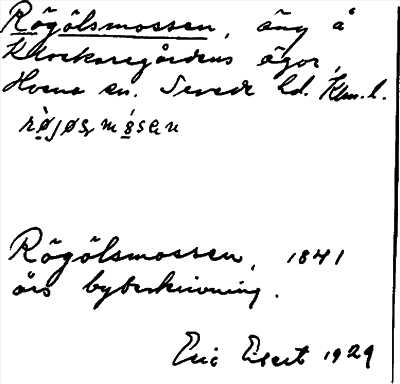 Rögölsmossen, äng å
Klockaregårdens ägor,
sn. Sevede hd. Klm. l.
Rögölsmossen, 1841
års bybeskrivning.
Eric Elgert 1929